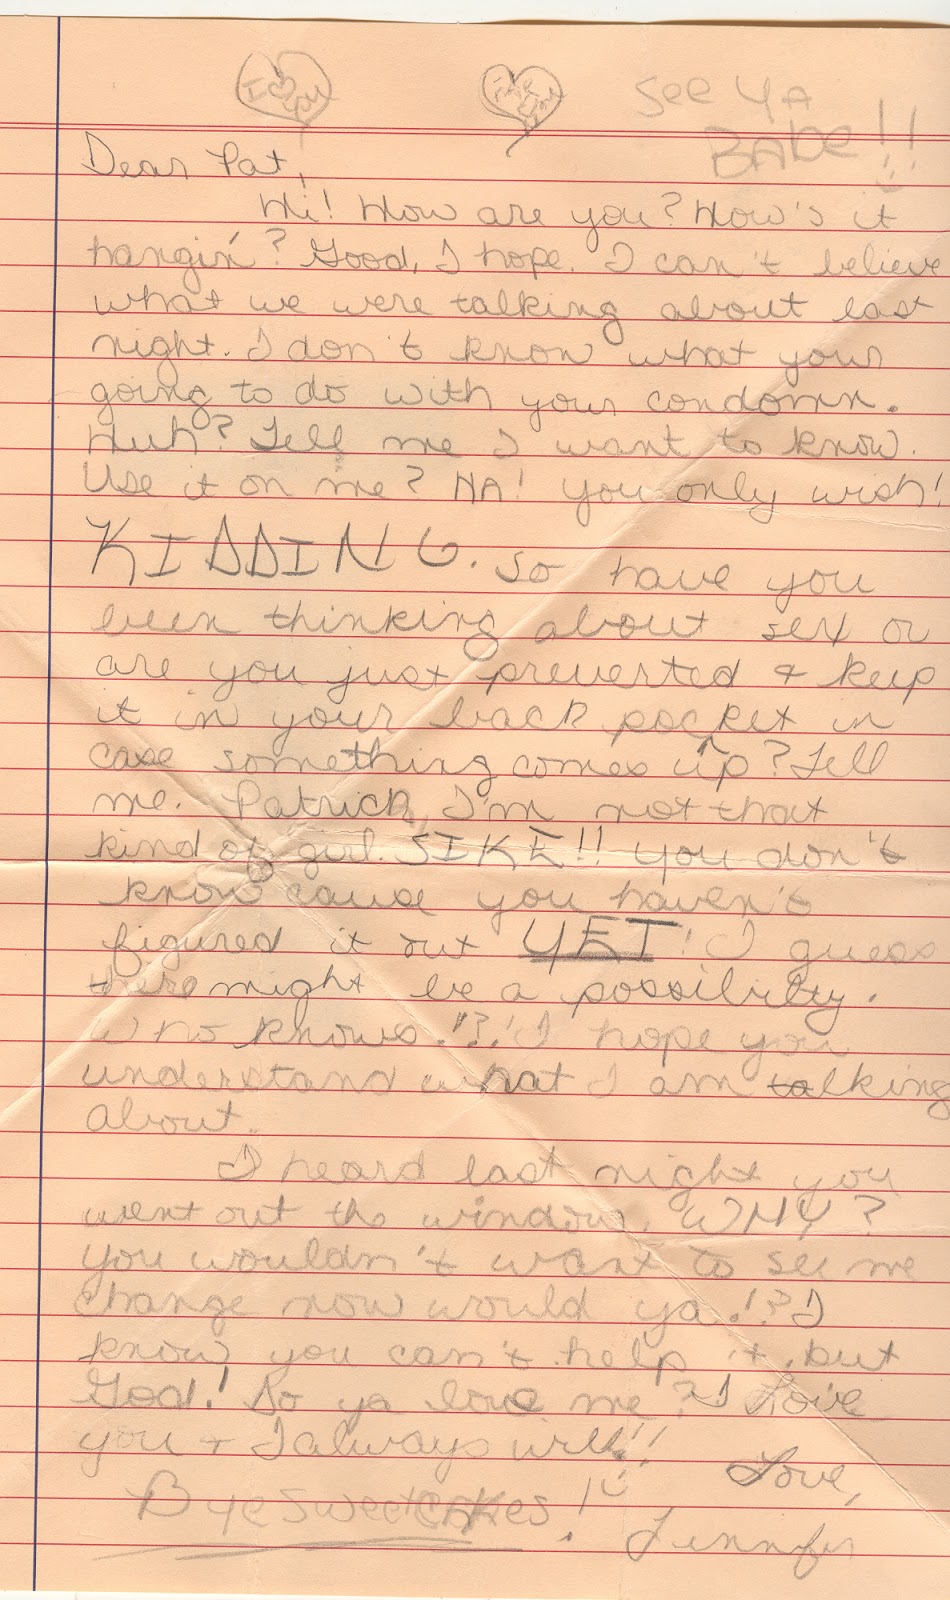 I ♡ you
See YA
BABe!!
Dear Pat,
Hi! How are you? How's it
hangin'? Good, I hope. I can't believe
what we were talking about last
night. I don't know what your
going to do with your condomn.
Huh? Tell me I want to know.
Use it on me? HA! You only wish!
KIDDING. So have you
been thinking about sex or
are you just preverted & keep
it in your back pocket in
case something comes up? Tell
me. Patrick, I'm not that
kind of girl. SIKE!! You don't
know cause you haven't
figured it out YET! I guess
there might be a possibilty.
Who knows!?! I hope you
understand what I am talking
about.
I heard last night you
went out the window. WHY?
You wouldn't want to see me
change now would ya!? I
know you can't help it, but
God! Do ya love me? I Love
you & I always will!!
Love,
Bye sweetcakes!
Jennifer